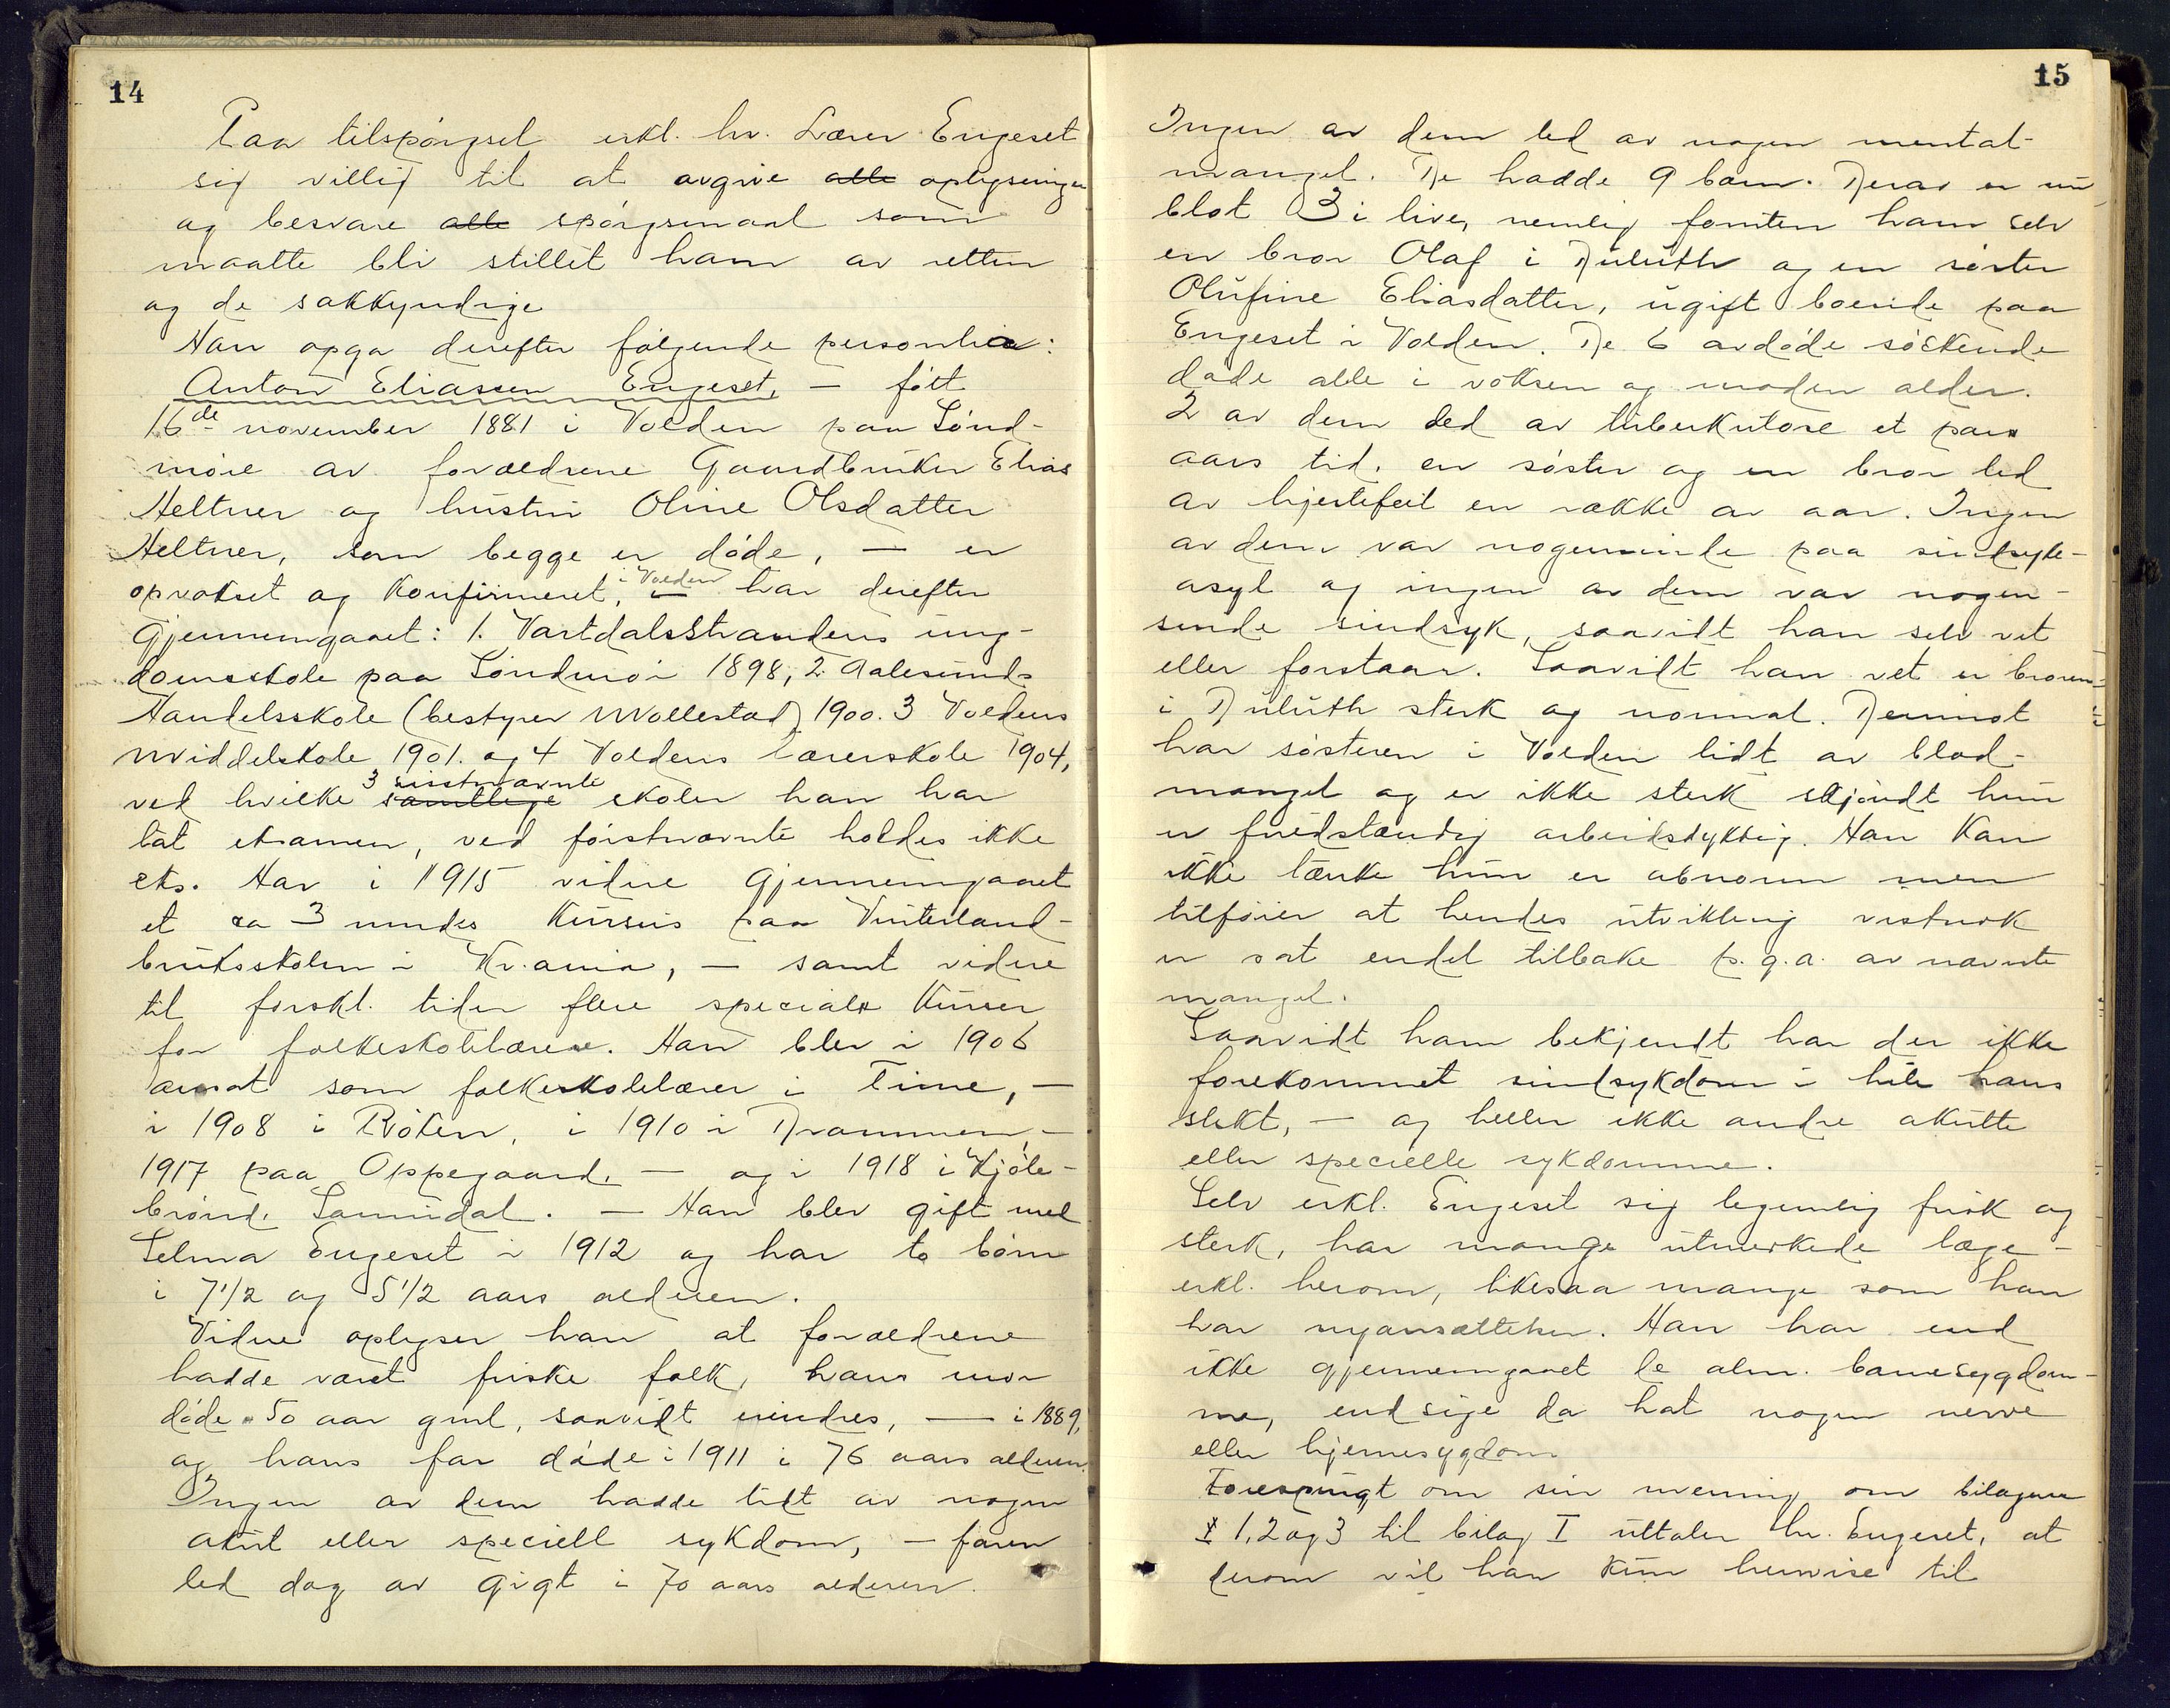 14
Paa tilspørgsel erkl. hr. Lærer Engeset
sig villig til at avgive alle oplysninger
og besvare alle spørgsmaal som
maatte bli stillet ham av retten
og de sakkyndige
Han opga derefter følgende personlia:
Anton Eliassen Engeset, — født
16de november 1881 i Volden paa Sønd-
møre av forældrene Gaardbruker Elias
Heltner og hustru Oline Olsdatter
Heltner, som begge er døde, — er
opvokset og konfirmeret, i Volden har derefter
Gjennemgaaet: 1. Vartdalsstrandens ung-
domsskole paa Søndmør 1898, 2. Aalesunds
Handelsskole (bestyrer Møllerstad) 1900. 3 Voldens
Middelskole 1901. og 4 Voldens lærerskole 1904,
ved hvilke samtlige 3 sistnævnte skoler han har
tat eksamen, ved førstnævnte holdes ikke
eks. Har i 1915 videre gjennemgaaet
et ca 3 mndes kursus paa Vinterland-
bruksskolen i Kr.ania, — samt videre
til forskl. tider flere speciale kurser
for folkeskolelærere. Han blev i 1906
ansat som folkeskolelærer i Time, —
i 1908 i Røken, i 1910 i Drammen, —
1917 paa Oppegaard, — og i 1918 i Kjøle-
brønd, Sannidal. — Han blev gift med
Selma Engeset i 1912 og har to børn
i 7 1/2 og 5 1/2 aars alderen.
Videre oplyser han at forældrene
hadde været friske folk, hans mor
døde 50 aar gml, saavidt erindres, — i 1889,
og hans far døde i 1911 i 76 aars alderen.
Ingen av dem hadde lidt av nogen
akut eller speciell sykdom, — faren
led dog av gigt i 70 aars alderen.
15
Ingen av dem led av nogen mental-
mangel. De hadde 9 barn. Derav er nu
blot 3 i live, nemlig foruten ham selv
en bror Olaf i Duluth og en søster
Olufine Eliasdatter, ugift boende paa
Engeset i Volden. De 6 avdøde søskende
døde alle i voksen og moden alder.
2 av dem led av tuberkulose et pars
aars tid, en søster og en bror led
av hjertefeil en række av aar. Ingen
av dem var nogensinde paa sindsyke-
asyl og ingen av dem var nogen-
sinde sindsyk, saavidt han selv vet
eller forstaar. Saavidt han vet er broren
i Duluth sterk og normal. Derimot
har søsteren i Volden lidt av blod-
mangel og er ikke sterk skjøndt hun
er fuldstændig arbeidsdyktig. Han kan
ikke tænke hun er abnorm men
tilføier at hendes utvikling vistnok
er sat endel tilbake p.g.a. av nævnte
mangel.
Saavidt ham bekjendt har der ikke
forekommet sindsykdom i hele hans
slekt, — og heller ikke andre akutte
eller specielle sykdomme.
Selv erkl. Engeset sig legemlig frisk og
sterk, har mange utmerkede læge-
erkl. herom, likesaa mange som han
har nyansættelser. Han har end
ikke gjennemgaaet de alm. barnesygdom-
me, endsige da hat nogen nerve
eller hjernesygdom
Forespurgt om sin mening om bilagene
1, 2 og 3 til bilag I uttaler hr. Engeset, at
derom vil han kun henvise til